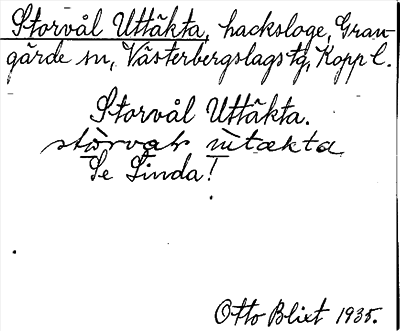 Storvål Uttäkta, hacksloge, Gran-
gärde sn, Västerbergslags tg, Kopp l.
Storvål Uttäkta.
Se Linda!
Otto Blixt 1935.